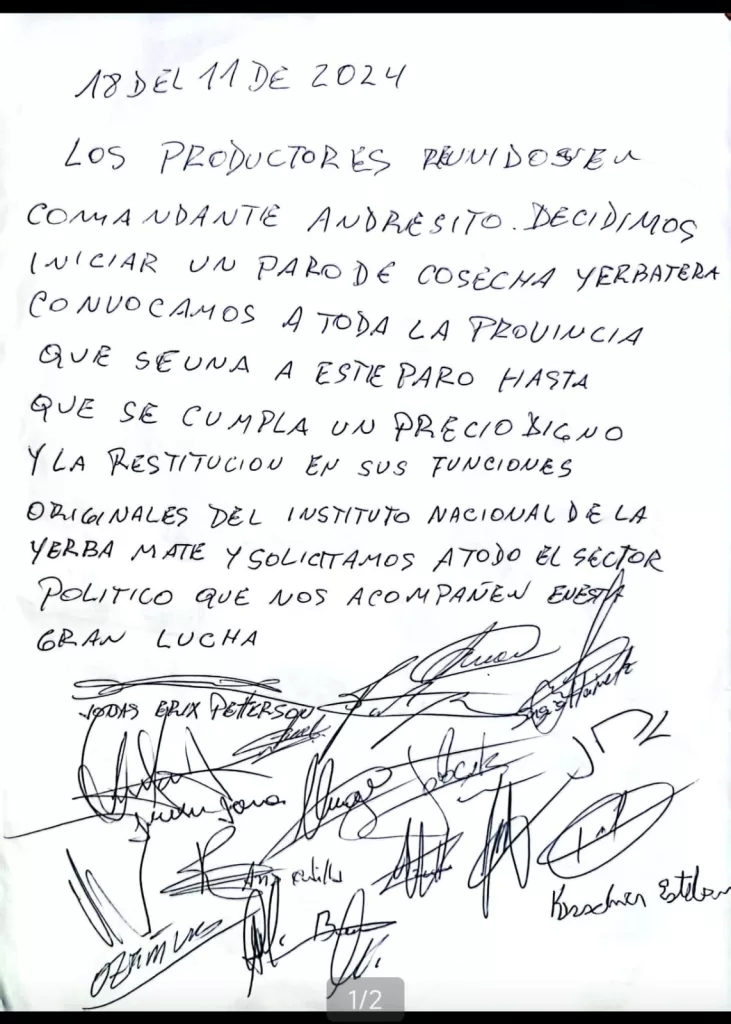 18 DEL 11 DE 2024
LOS PRODUCTORES REUNIDOS EN
COMANDANTE ANDRESITO. DECIDIMOS
INICIAR UN PARO DE COSECHA YERBATERA
CONVOCAMOS A TODA LA PROVINCIA
QUE SE UNA A ESTE PARO HASTA
QUE SE CUMPLA UN PRECIO DIGNO
Y LA RESTITUCION EN SUS FUNCIONES
ORIGINALES DEL INSTITUTO NACIONAL DE LA
YERBA MATE Y SOLICITAMOS A TODO EL SECTOR
POLITICO QUE NOS ACOMPAÑEN EN ESTA
GRAN LUCHA
ERIX PETTERSON
Hugo
Kirschner Esteban
1/2